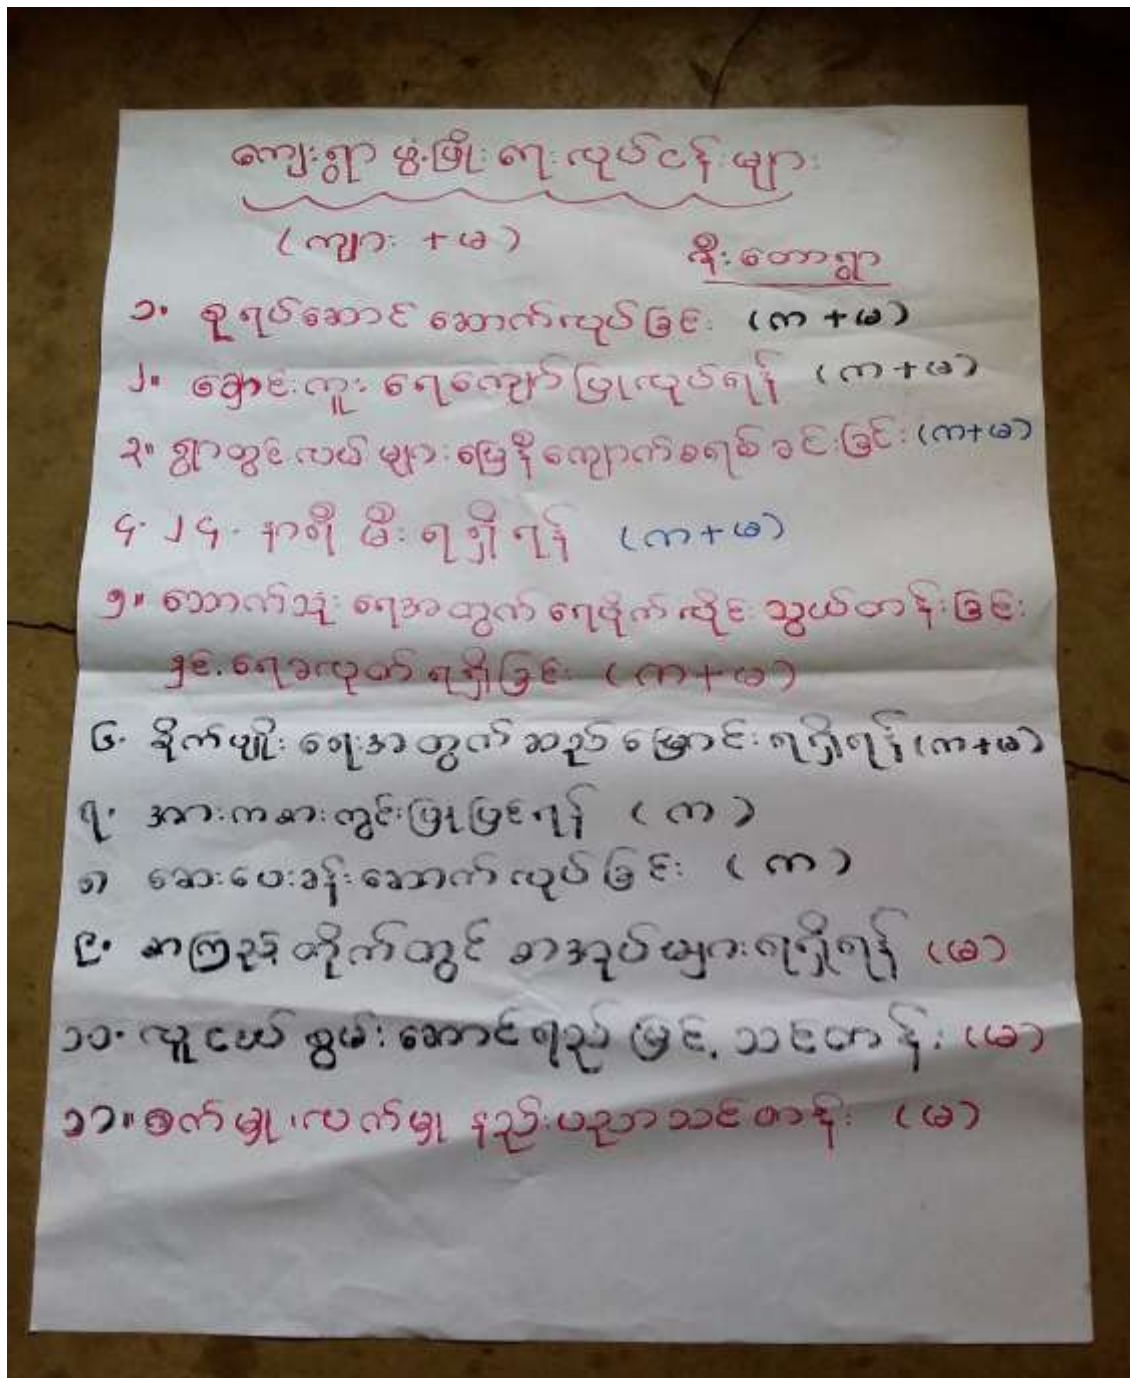 ကျေးရွာ ဖွံ့ဖြိုး ရေး လုပ်ငန်း များ
(ကျား + မ)
ဇီးတောရွာ
၁။ စုရပ်ဆောင် ဆောက်လုပ်ခြင်း (က + မ)
၂။ ချောင်းကူး ရေကျော် ပြုလုပ်ရန် (က + မ)
၃။ ရွာတွင်းလယ် များ မြေနီကျောက်စရစ် ခင်းခြင်း (က + မ)
၄. ၂၄. နာရီ မီး ရရှိ ရန် (က + မ)
၅။ သောက်သုံး ရေအတွက် ရေပိုက် လိုင်း သွယ်တန်းခြင်း
နှင့် ရေအလုတ် ရရှိခြင်း (က + မ)
၆. စိုက်ပျိုး ရေးအတွက် ဆည် မြောင်း ရရှိရန် (က + မ)
၇. အားကစားကွင်းပြုပြင်ရန် (က)
၈ ဆေးပေးခန်း ဆောက်လုပ်ခြင်း (က)
၉. စာကြည့် တိုက်တွင် စာအုပ်များရရှိရန် (မ)
၁၀. လူငယ် စွမ်းဆောင်ရည် မြှင့် သင်တန်း (မ)
၁၁။ စက်မှု၊ လက်မှု နည်းပညာ သင်တန်း (မ)